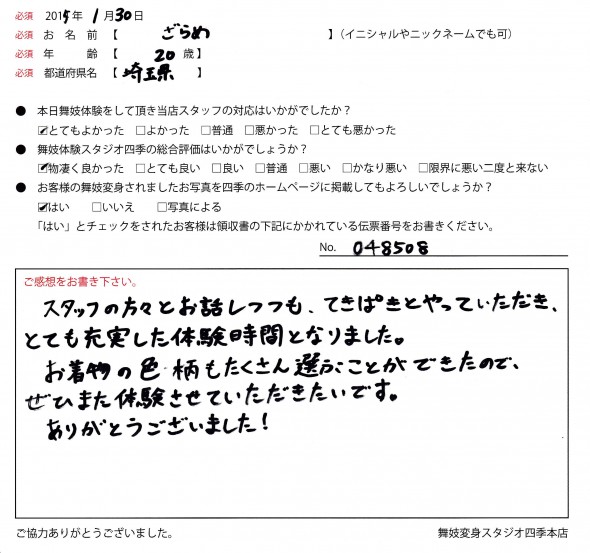 必須 2015年 1月30日
必須 お名前【 ざらめ 】（イニシャルやニックネームでも可）
必須 年齢【 20 歳】
必須 都道府県名【 埼玉県 】
● 本日舞妓体験をして頂き当店スタッフの対応はいかがでしたか？
☑とてもよかった □よかった □普通 □悪かった □とても悪かった
● 舞妓体験スタジオ四季の総合評価はいかがでしょうか？
☑物凄く良かった □とても良い □良い □普通 □悪い □かなり悪い □限界に悪い二度と来ない
● お客様の舞妓変身されましたお写真を四季のホームページに掲載してもよろしいでしょうか？
☑はい □いいえ □写真による
「はい」とチェックをされたお客様は領収書の下記にかかれている伝票番号をお書きください。
No. 048508
ご感想をお書き下さい。
スタッフの方々とお話しつつも、てきぱきとやっていただき、
とても充実した体験時間となりました。
お着物の色・柄もたくさん選ぶことができたので、
ぜひまた体験させていただきたいです。
ありがとうございました！
ご協力ありがとうございました。
舞妓変身スタジオ四季本店